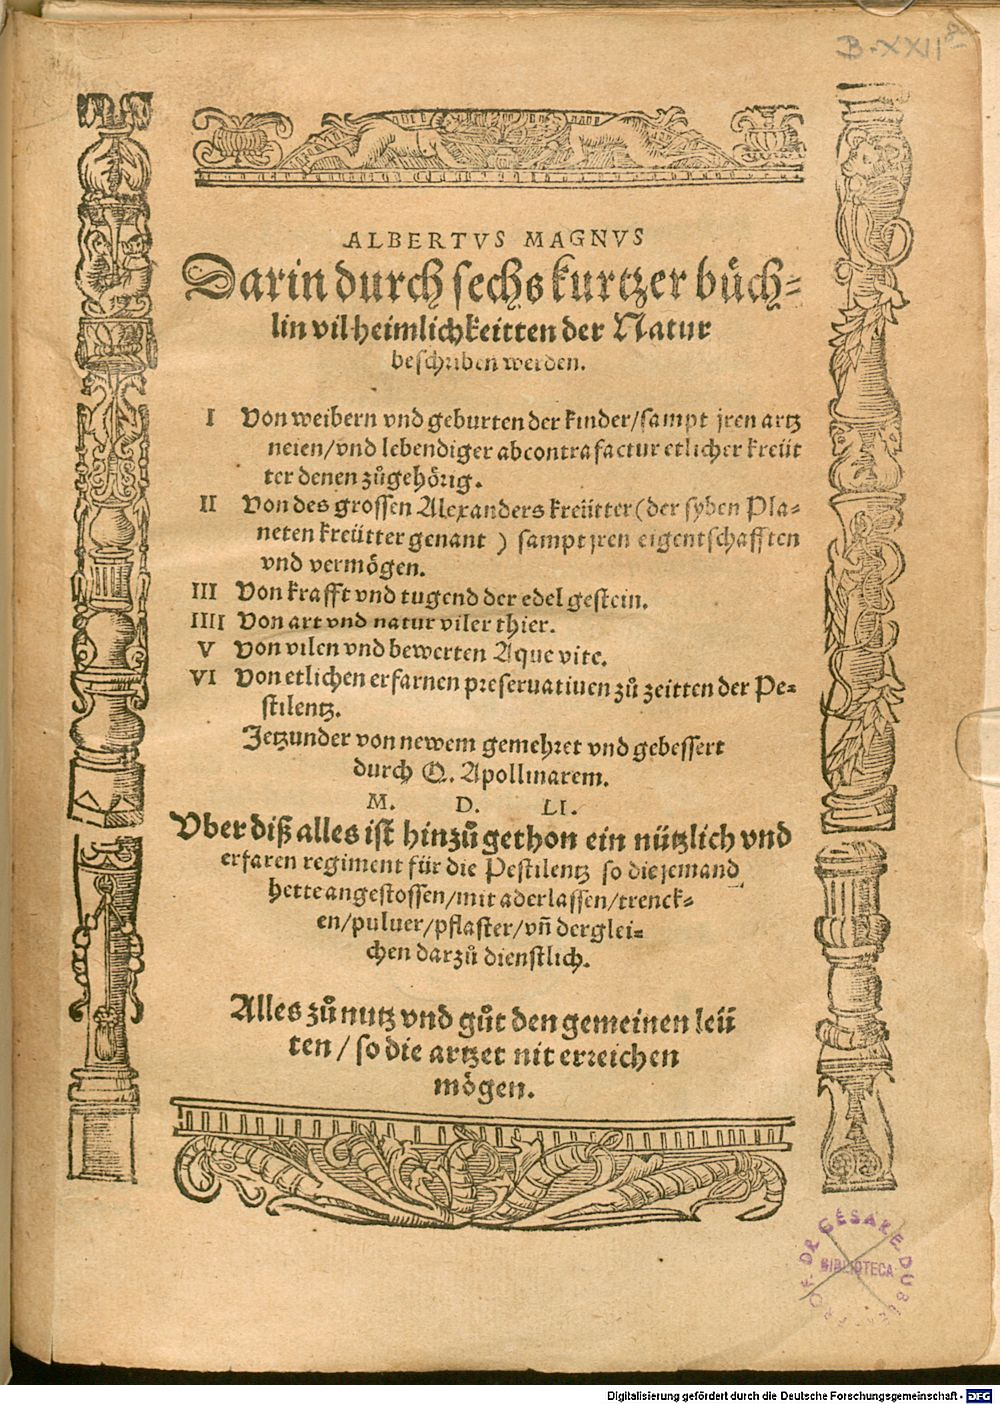 B·XXII
ALBERTVS MAGNVS
Darin durch sechs kurtzer bůch-
lin vil heimlichkeitten der Natur
beschriben werden.
I Von weibern vnd geburten der kinder/sampt jren artz
neien/vnd lebendiger abcontrafactur etlicher kreüt
ter denen zůgehörig.
II Von des grossen Alexanders kreütter (der syben Pla-
neten kreütter genant ) sampt jren eigentschafften
vnd vermögen.
III Von krafft vnd tugend der edel gestein.
IIII Von art vnd natur viler thier.
V Von vilen vnd bewerten Aque vite.
VI Von etlichen erfarnen preseruatiuen zů zeitten der Pe-
stilentz.
Jetzunder von newem gemehret vnd gebessert
durch Q. Apollinarem.
M. D. LI.
Vber diß alles ist hinzů gethon ein nützlich vnd
erfaren regiment für die Pestilentz so die jemand
hette angestossen/mit aderlassen/trenck-
en/puluer/pflaster/vñ derglei-
chen darzů dienstlich.
Alles zů nutz vnd gůt den gemeinen leü
ten / so die artzet nit erreichen
mögen.
PROF. DR CESARE DUB
BIBLIOTECA
Digitalisierung gefördert durch die Deutsche Forschungsgemeinschaft - DFG